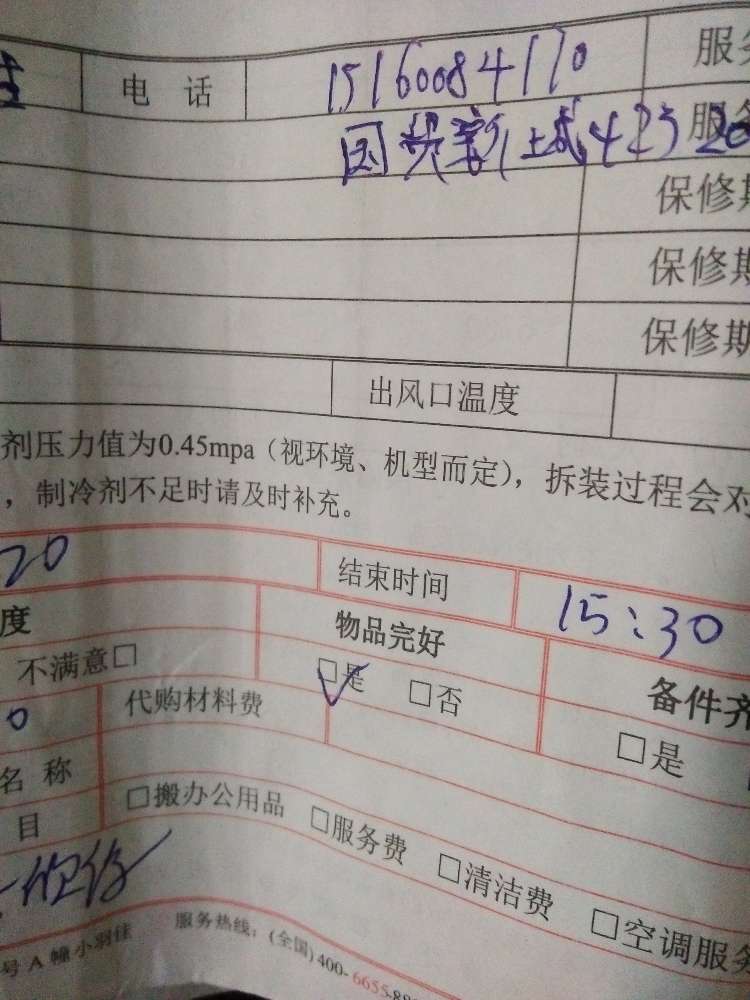 电 话 15160084170 服
国贸新 城 423 服
保修期
保修期
保修期
出风口温度
剂压力值为0.45mpa（视环境、机型而定），拆装过程会对
，制冷剂不足时请及时补充。
20 结束时间 15:30
度 物品完好 备件齐
不满意□ □是 □否 □是
0 代购材料费
名 称
目 □搬办公用品 □服务费 □清洁费 □空调服务
号 A 幢小羽佳 服务热线：(全国)400-6655-